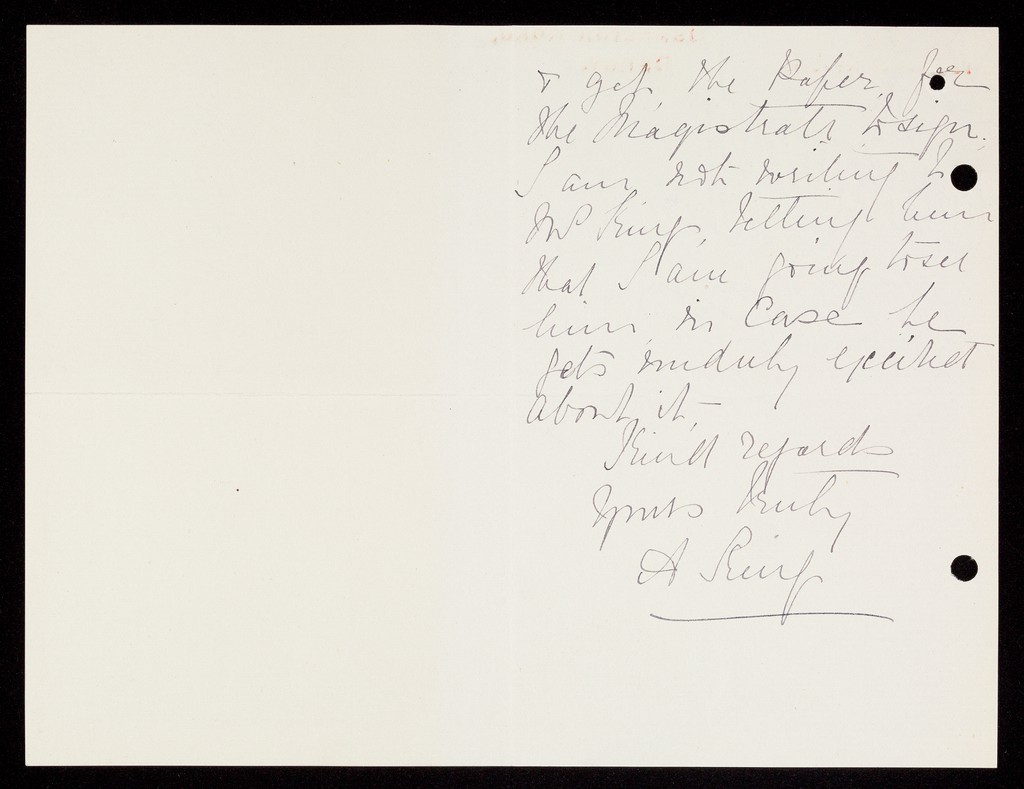 & get the Paper for
the Magistrate to sign.
I am not writing to
Mr King, telling him
that I am going to see
him, in Case he
gets unduly excited
about it,
Kind regards
Yours truly
A King